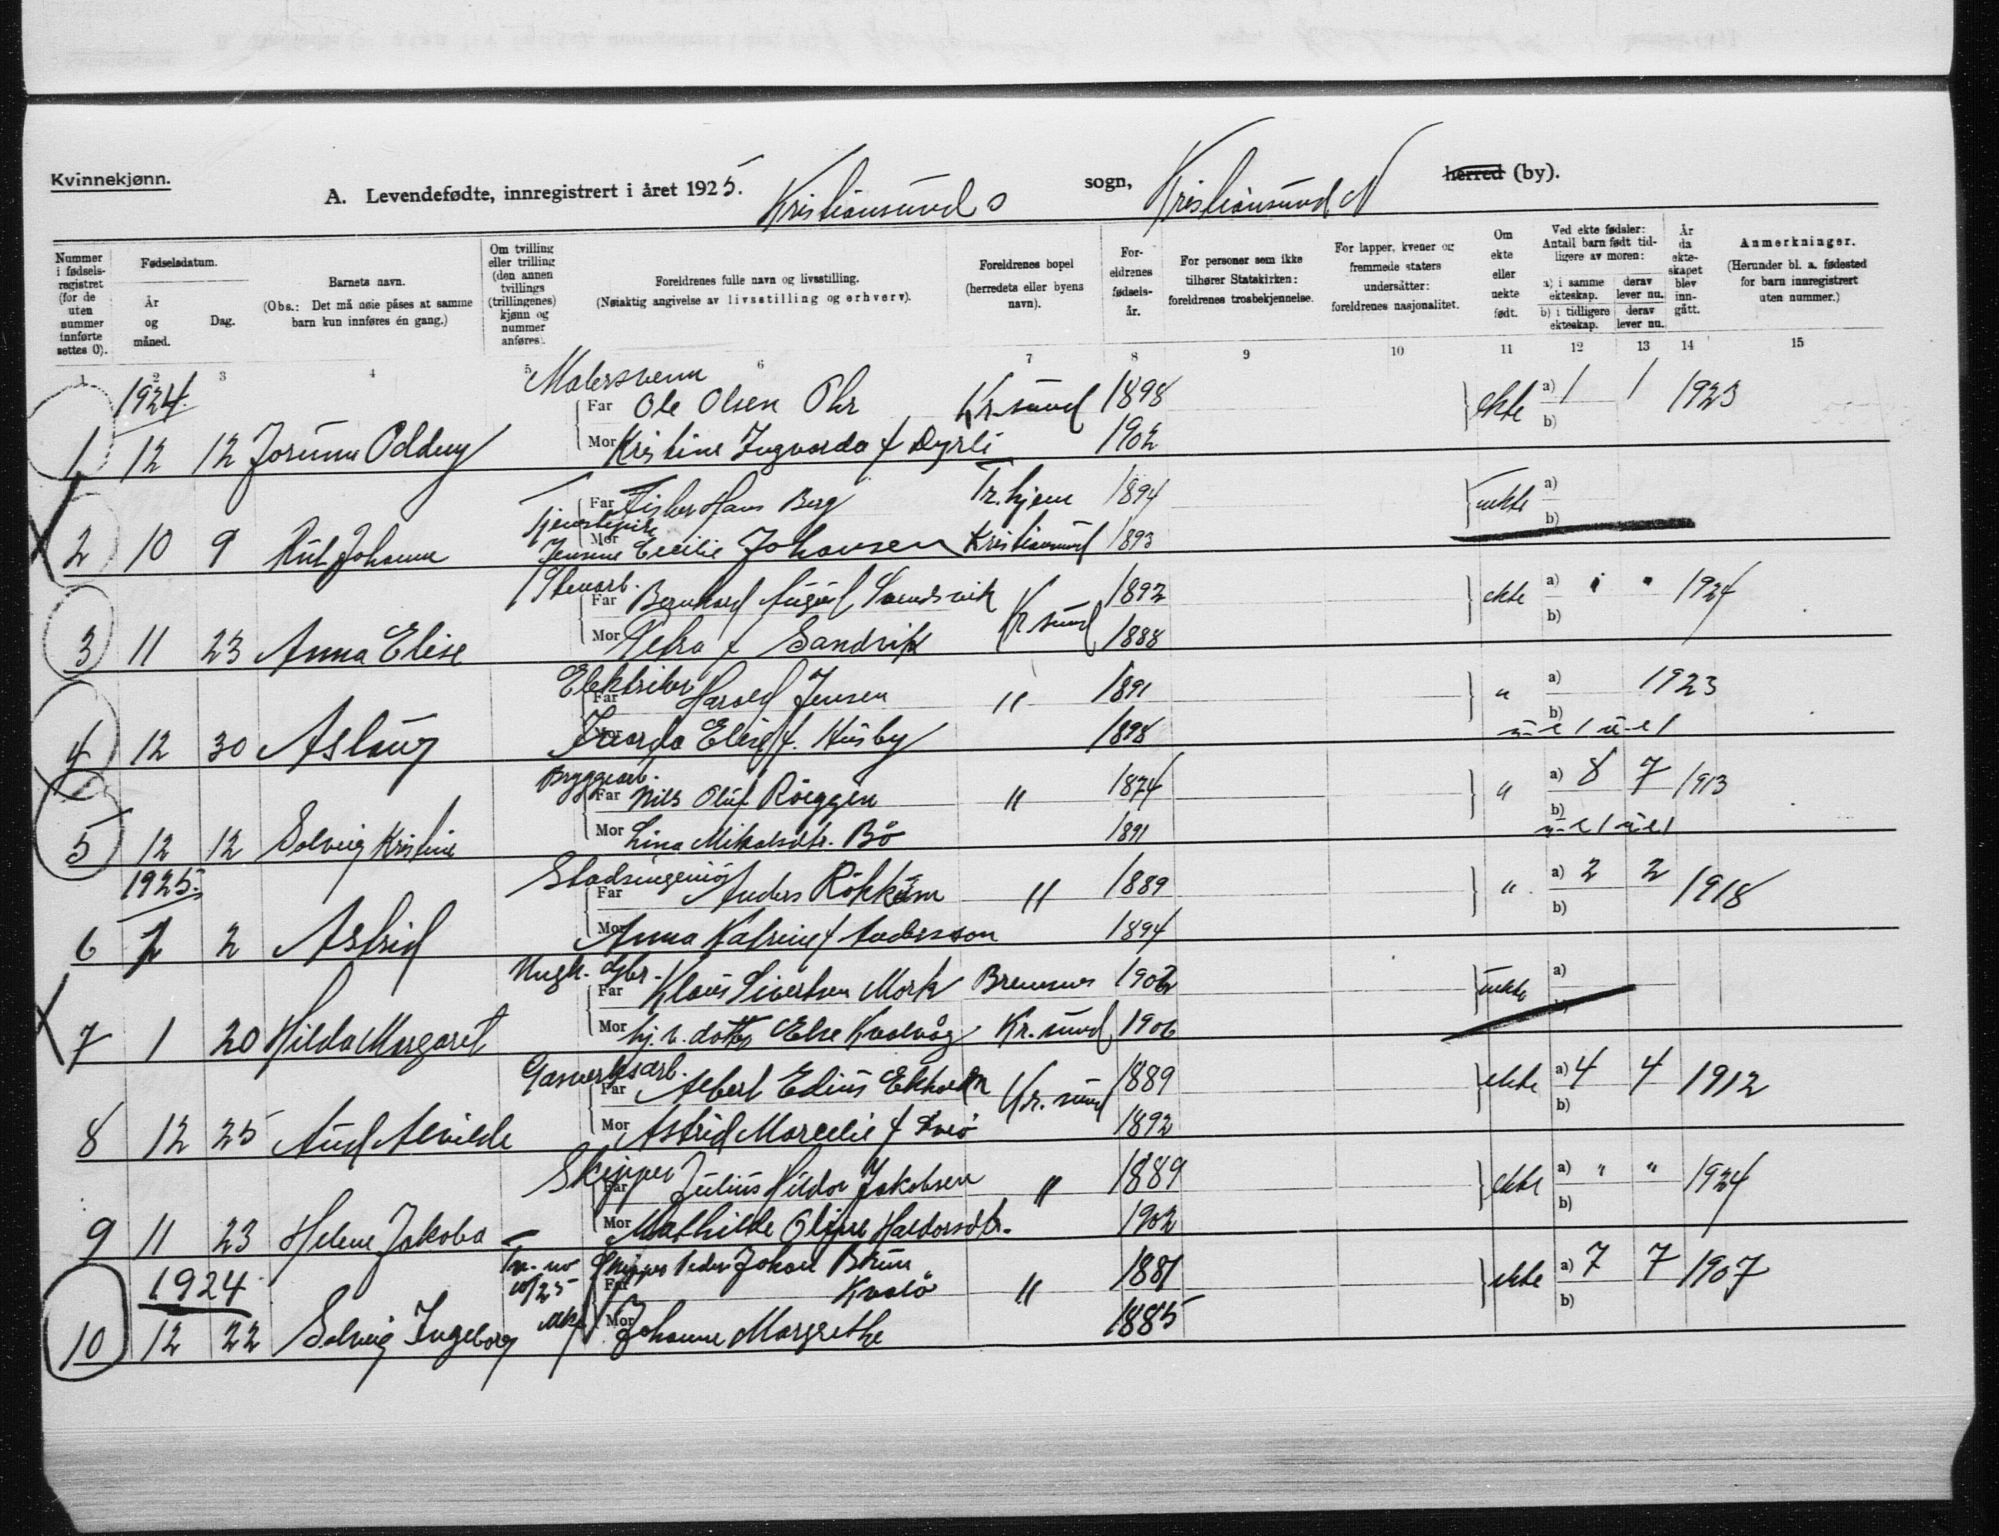 Kvinnekjønn.
A. Levendefødte, innregistrert i året 1925. Kristiansund s sogn, Kristiansund N herred (by).
Nummer i fødsels-registret (for de uten nummer innførte settes 0).
Fødselsdatum.
År og måned.
Dag.
Barnets navn.
(Obs.: Det må nøie påses at samme barn kun innføres én gang.)
Om tvilling eller trilling (den annen tvillings (trillingenes) kjønn og nummer anføres).
Foreldrenes fulle navn og livsstilling.
(Nøiaktig angivelse av livsstilling og erhverv).
Foreldrenes bopel (herredets eller byens navn).
For-eldrenes fødsels-år.
For personer som ikke tilhører Statskirken: foreldrenes trosbekjennelse.
For lapper, kvener og fremmede staters undersåtter: foreldrenes nasjonalitet.
Om ekte eller uekte født.
Ved ekte fødsler: Antall barn født tid-ligere av moren:
a) i samme ekteskap. derav lever nu.
b) i tidligere ekteskap. derav lever nu.
År da ekte-skapet blev inn-gått.
Anmerkninger.
(Herunder bl. a. fødested for barn innregistrert uten nummer.)
1 2 3 4 5 6 7 8 9 10 11 12 13 14 15
1924. Malersvenn
Far Ole Olsen Ohr Kr.sund 1898 ekte a) 1 1 1923
b)
1 12 12 Jorunn Oddny Mor Kristine Ingvarda f Dyrli 1902
Far Fisker Hans Berg Tr.hjem 1894 uekte a)
Tjenestepike b)
2 10 9 Rut Johanne Mor Jensine Cecilie Johansen Kristiansund 1893
Stenarb.
Far Bernhard August Sandvik Kr.sund 1892 ekte a) " " 1924
b)
3 11 23 Anna Elise Mor Petra f Sandvik 1888
Elektriker
Far Harald Jensen " 1891 " a) 1923
b)
4 12 30 Aslaug Mor Elise f. Husby 1898 u-e 1 u-e 1
Bryggearb.
Far Nils Oluf Röeggen " 1874 " a) 8 7 1913
b)
5 12 12 Solveig Kristine Mor Lina Mikalsdtr. Bö 1891 u-e 1 u-e 1
1925. Stadsingeniør
Far Anders Rökkum " 1889 " a) 2 2 1918
b)
6 1 2 Astrid Mor Anna Katrine f Andersson 1894
Ungk. gbr.
Far Klaus Sivertsen Mork Bremsnes 1902 uekte a)
b)
7 1 20 Hilda Margaret Mor hj.v. datter Else Kvalvåg Kr.sund 1906
Gasverksarb.
Far Albert Edius Ekholm Kr.sund 1889 ekte a) 4 4 1912
b)
8 12 25 Aud Alvilde Mor Astrid Marcelie f 1892
Skipper
Far Julius Hildor Jakobsen " 1889 ekte a) " " 1924
b)
9 11 23 Helene Jakoba Mor Mathilde Oline Haldorsdtr. 1902
1924 Tv. nr 10/25 Skipper Peder Johan Brun
Far Kvalö " 1881 ekte a) 7 7 1907
b)
10 12 22 Solveig Ingeborg Mor Johanne Margrethe 1885